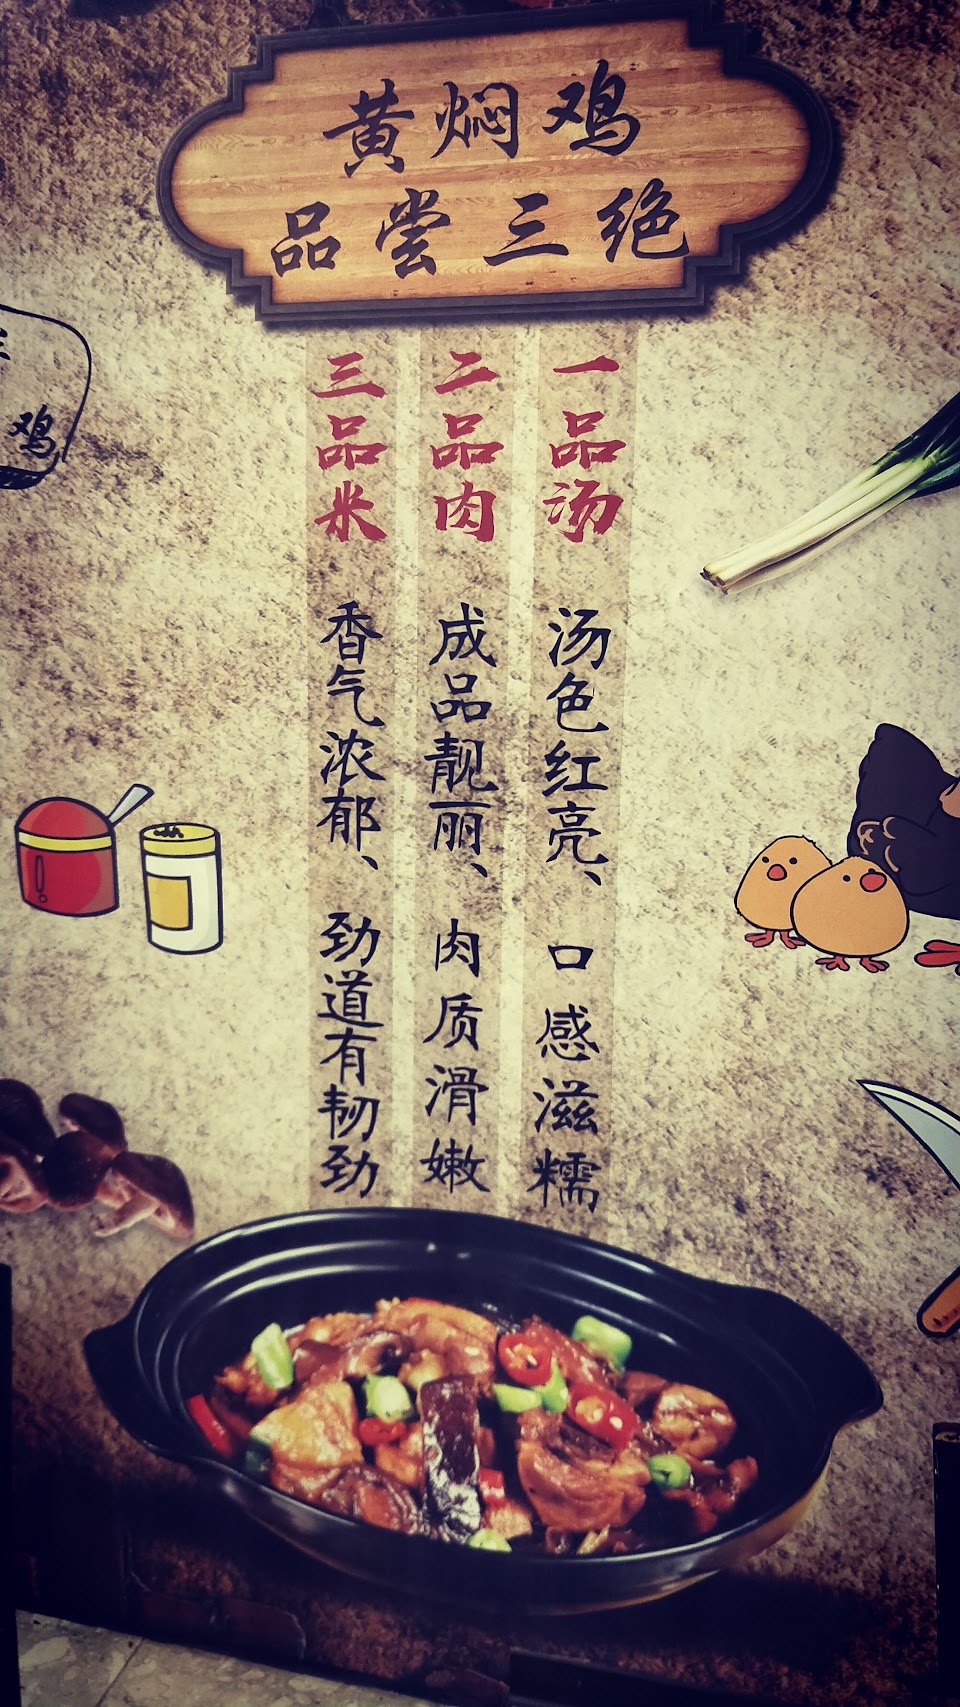 黄焖鸡
品尝三绝
一品汤 汤色红亮、口感滋糯
二品肉 成品靓丽、肉质滑嫩
三品米 香气浓郁、劲道有韧劲
三
鸡